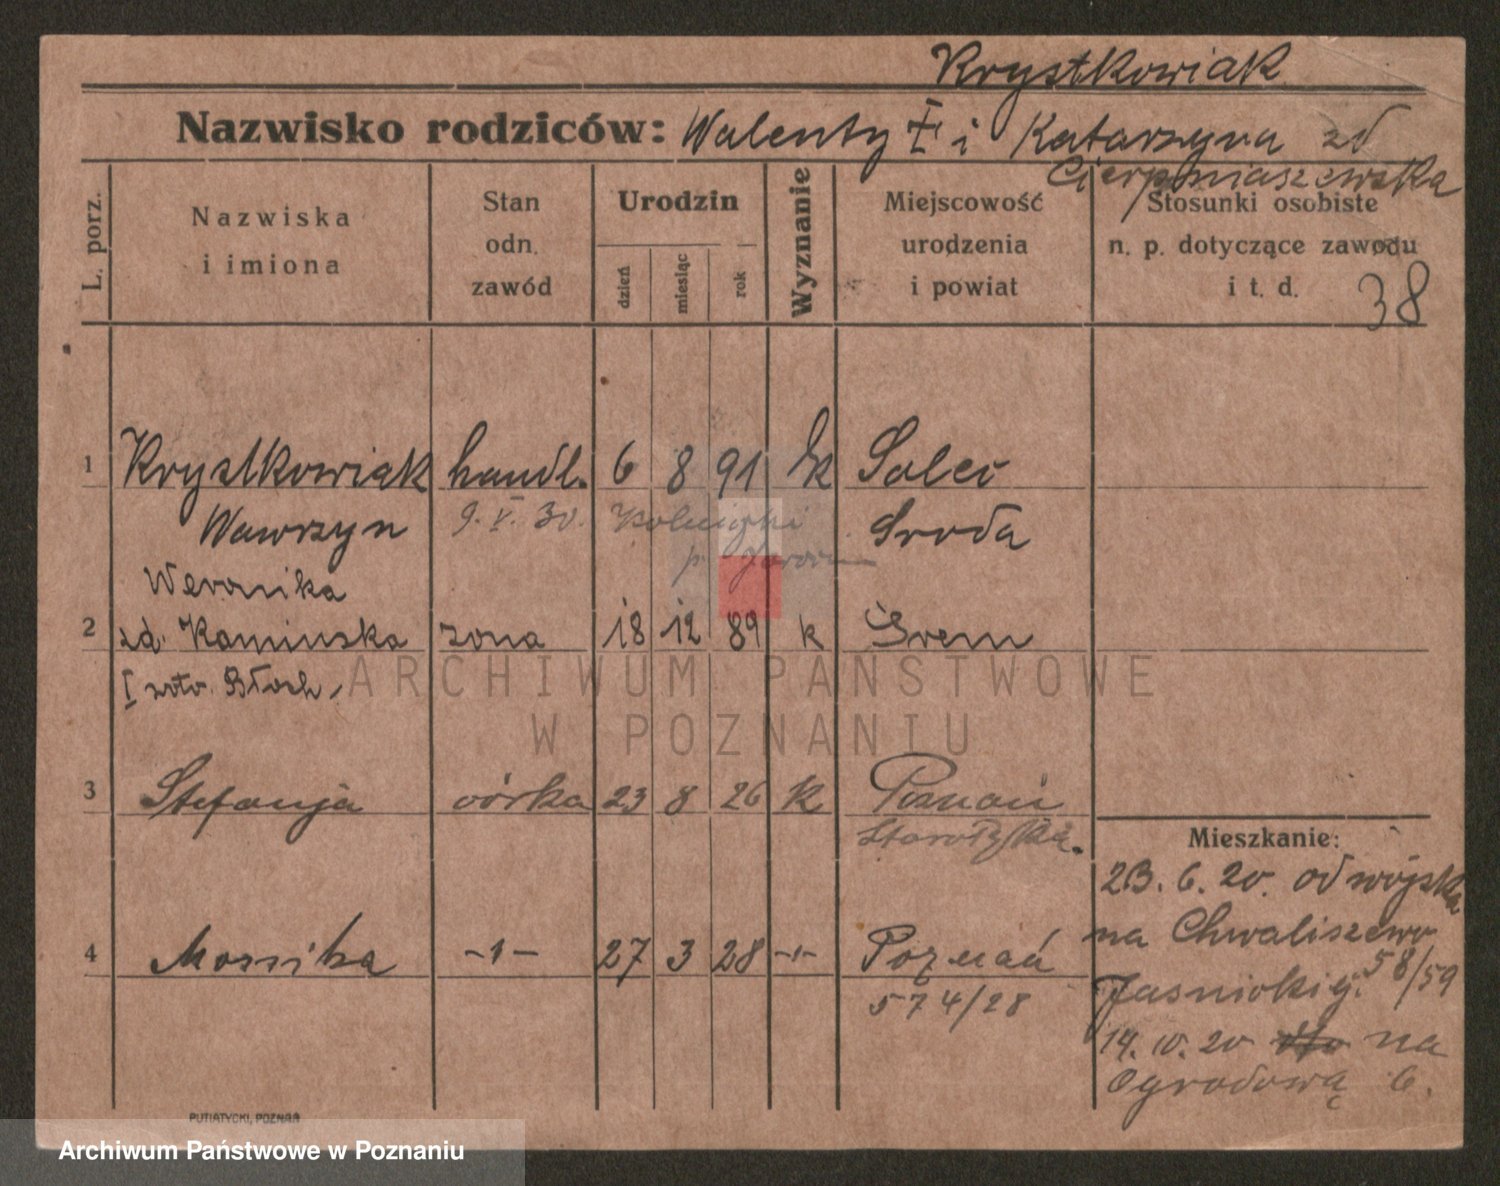 Krystkowiak
Nazwisko rodziców: Walenty † i Katarzyna zd
Cierpniaszewska
L. porz.
Nazwiska
i imiona
Stan
odn.
zawód
Urodzin
dzień
miesiąc
rok
Wyznanie
Miejscowość
urodzenia
i powiat
Stosunki osobiste
n. p. dotyczące zawodu
i t. d.
38
1 Krystkowiak handl. 6 8 91 k Solec
Wawrzyn 9. V. 30. Sroda
Weronika
2 zd. Kaminska zona 18 12 89 k Śrem
I Błoch
3 Stefanja córka 23 8 26 k Poznań
Mieszkanie:
23. 6. 20. od wojska
na Chwaliszewo
58/59
14. IV. 20 na
Ogrodową 6.
4 -"- 27 3 28 -"- Poznań
574/28
PUTIATYCKI, POZNAŃ
ARCHIWUM PAŃSTWOWE
W POZNANIU
Archiwum Państwowe w Poznaniu